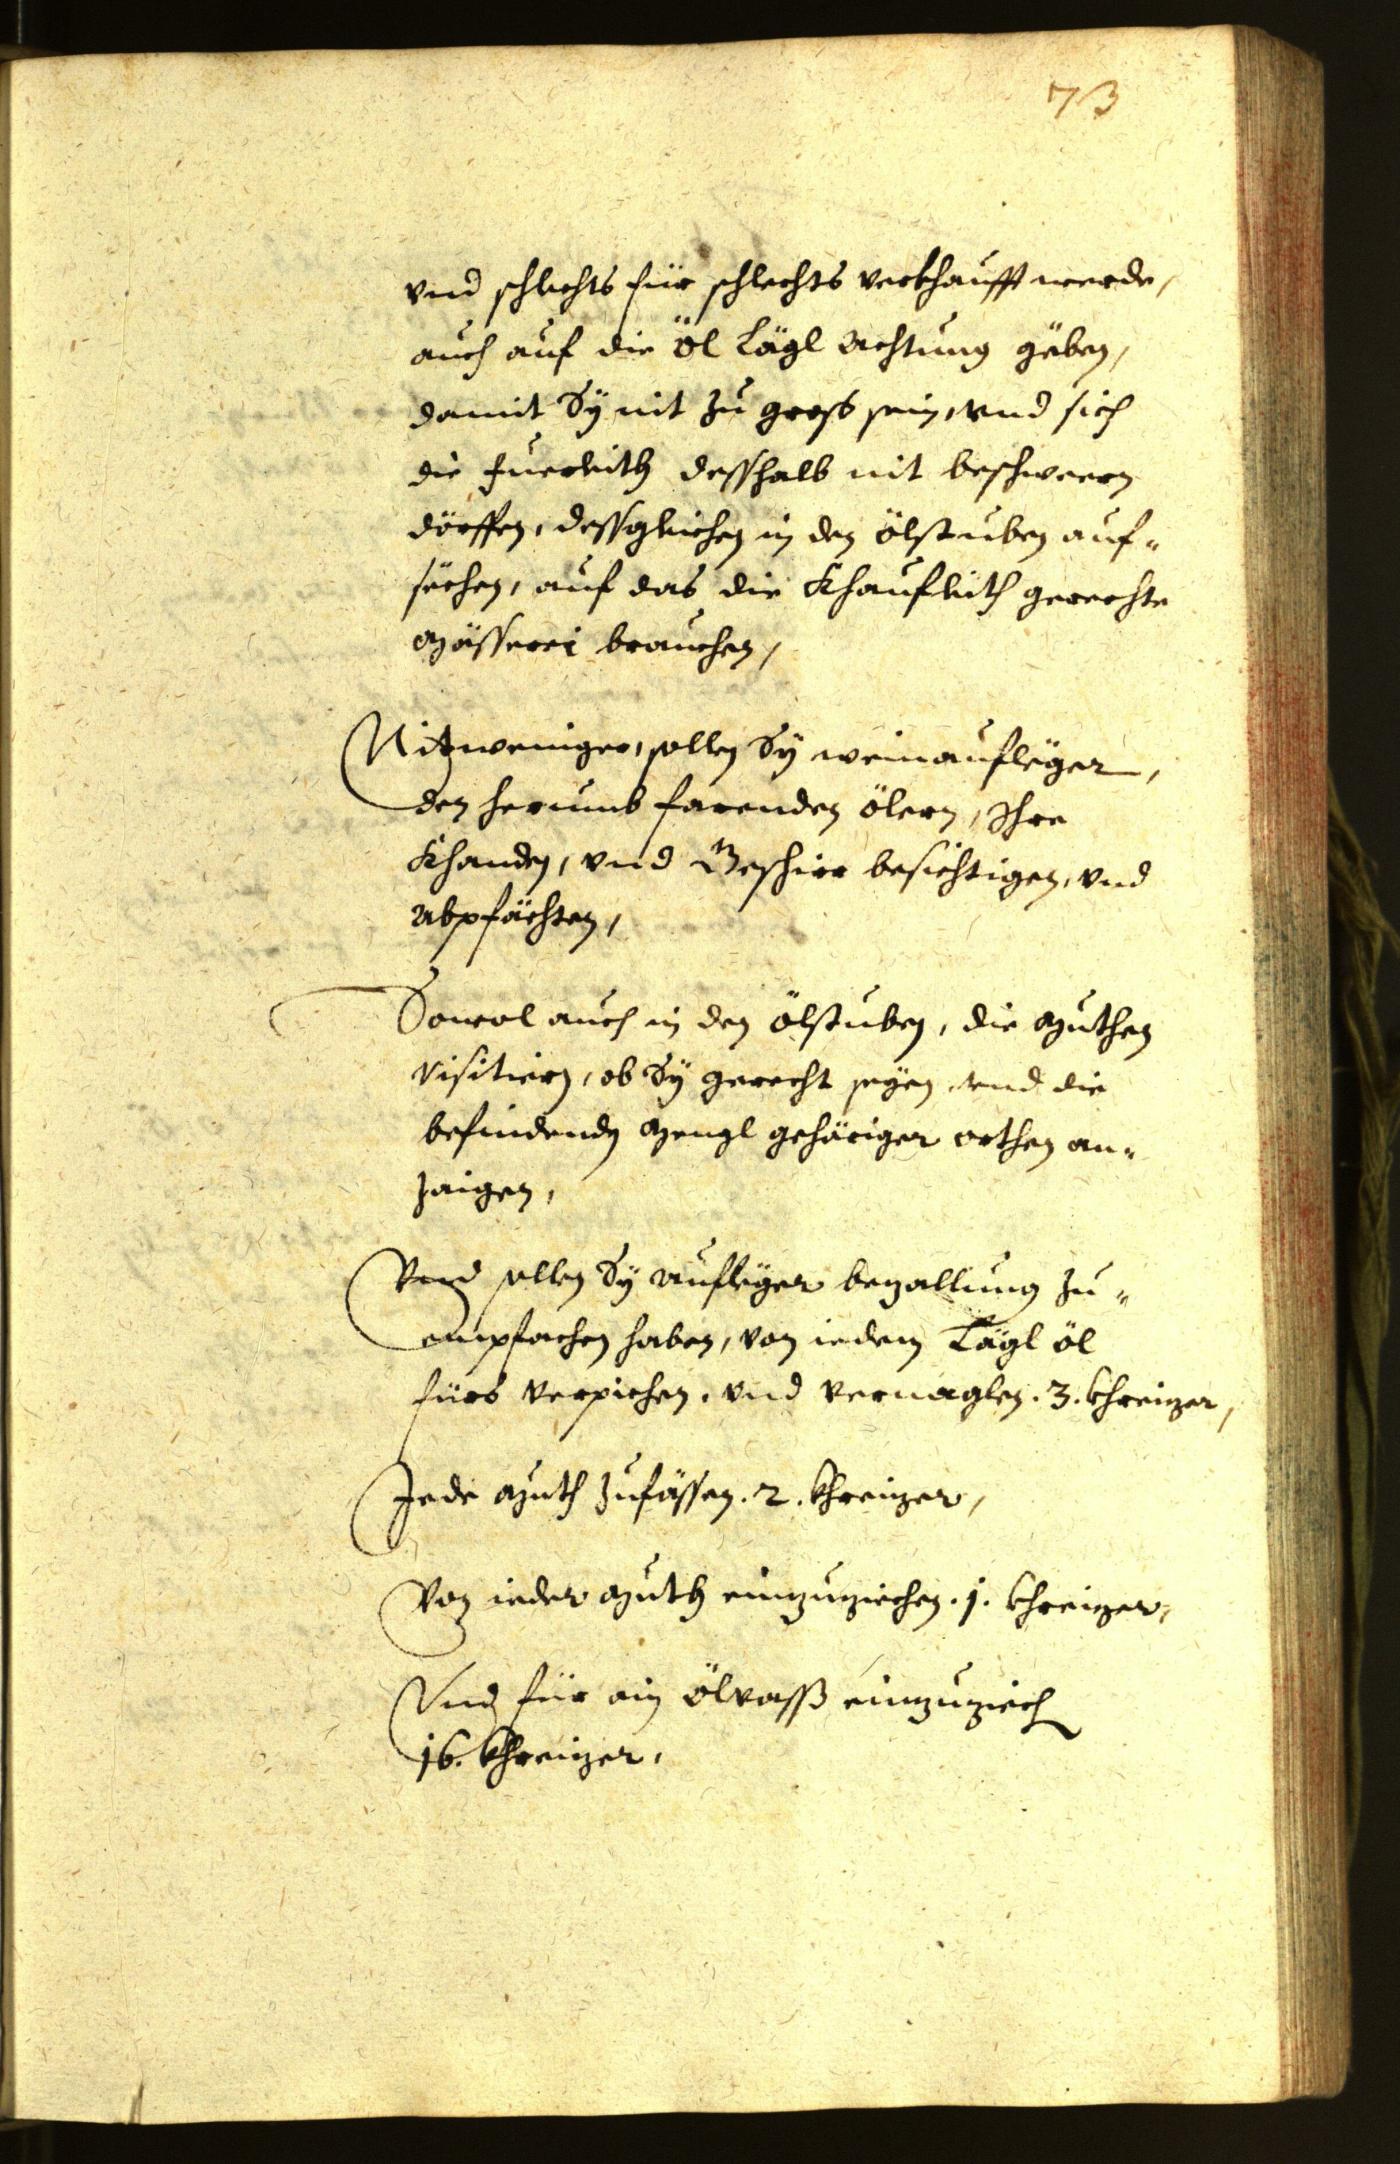 73
vnd schlechts für schlechts verkhaufft werde,
auch auf die Öl Lägl achtung gäben,
damit Sÿ nit zu gross sein, vnd sich
die fuerleith desshalb nit beschweern
dörffen, dessgleichen in den ölstuben auf-
sechen, auf das die Khaufleith gerechte
Mässerei brauchen,
Nit weniger, sollen Sÿ weinaufleger,
den herumb farenden ölern, Ihre
Khanden, vnd Geschirr besichtigen, vnd
abpfächten,
Sowol auch in den ölstuben, die Muthen
visitiern, ob Sÿ gerecht seyen vnd die
befindenden Mengl gehöriger orthen an-
zaigen,
Vnd sollen Sÿ aufleger bezallung zu-
empfachen haben, von iedem Lägl öl
fürs verpichen, vnd vernaglen. 3. khreizer,
Jede Muth zufässen. 2. khreizer,
Von ieder Muth einzuziechen. 1. khreizer,
Vnd für ain ölvass einzuziech
16. khreizer,